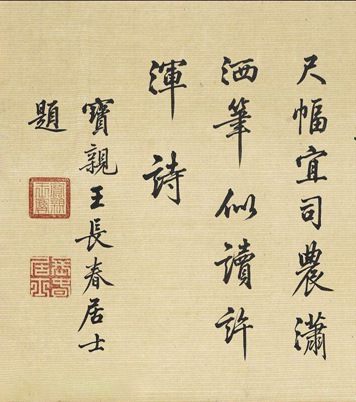 尺幅宜司農瀟
洒筆似讀許
渾詩
寶親王長春居士
題